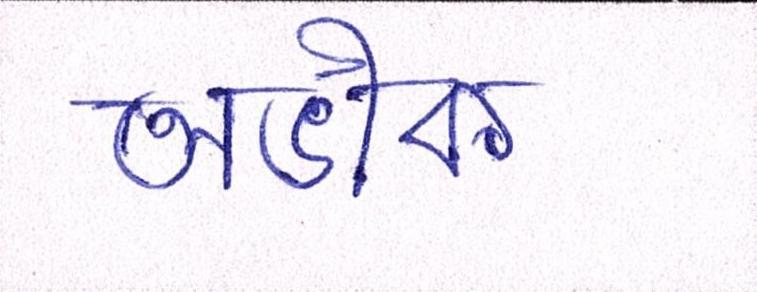 অভীক